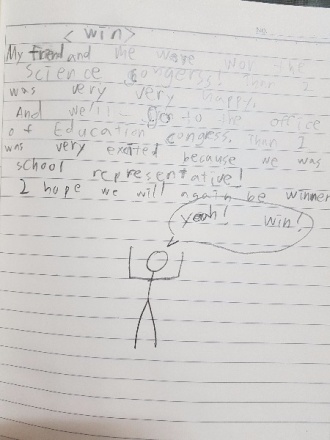 < win >
My friend and me were won the
science congerss! Then I
was very very happy.
And we'll Go to the office
of Education congess. Then I
was very excited because we was
school representative!
I hope we will again be winner
yeah! win!